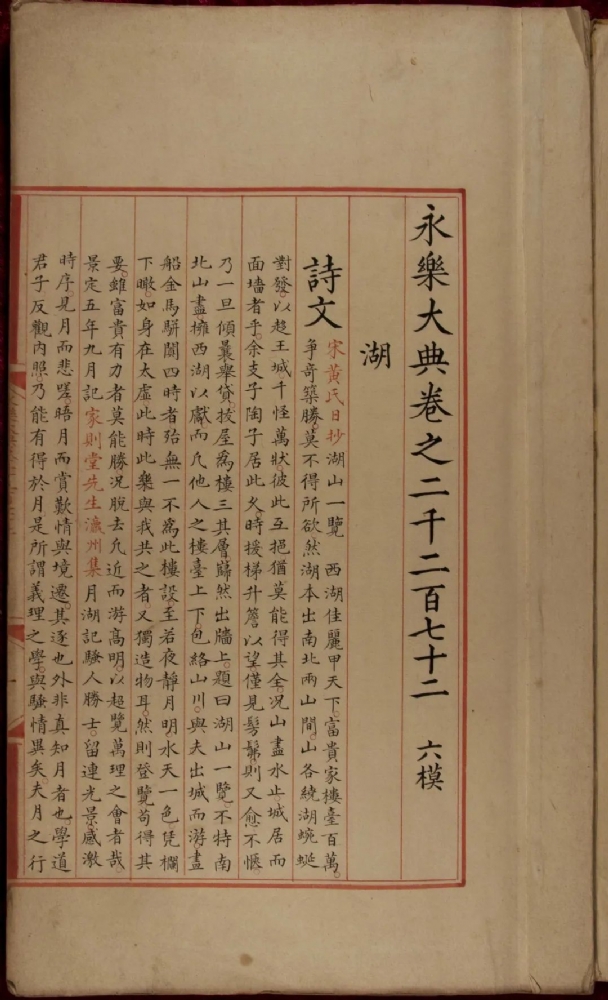 永樂大典卷之二千二百七十二　六模
湖
詩文
宋黃氏日抄湖山一覽　西湖佳麗甲天下。富貴家樓臺百萬。
爭奇築勝。莫不得所欲然湖本出南北兩山間。山各繞湖蜿蜒
對發。以趍王城千怪萬狀。彼此互挹猶莫能得其全。況山盡水止。城居而
面墻者乎。余支子陶子居此久。時援梯升簷以望僅見髣髴則又愈不愜。
乃一旦傾囊舉貸拔屋爲樓三其層巋然出牆上。題曰湖山一覽。不特南
北山盡擁西湖以獻而凡他人之樓臺上下。包絡山川。與夫出城而游畫
船金馬駢闐四時者殆無一不爲此樓設。至若夜靜月明。水天一色凭欄
下瞰。如身在太虛此時此樂與我共之者。又獨造物耳。然則登覽苟得其
要。雖富貴有力者莫能勝況脫去凡近而游高明。以超覽萬理之會者哉。
景定五年九月記家則堂先生瀛州集　月湖記騷人勝士。留連光景。感激
時序。見月而悲蹉。晤月而賞歎情與境遷。其逐也外非真知月者也。學道
君子反觀內照。乃能有得於月是所謂義理之學。與騷情異矣。夫月之行